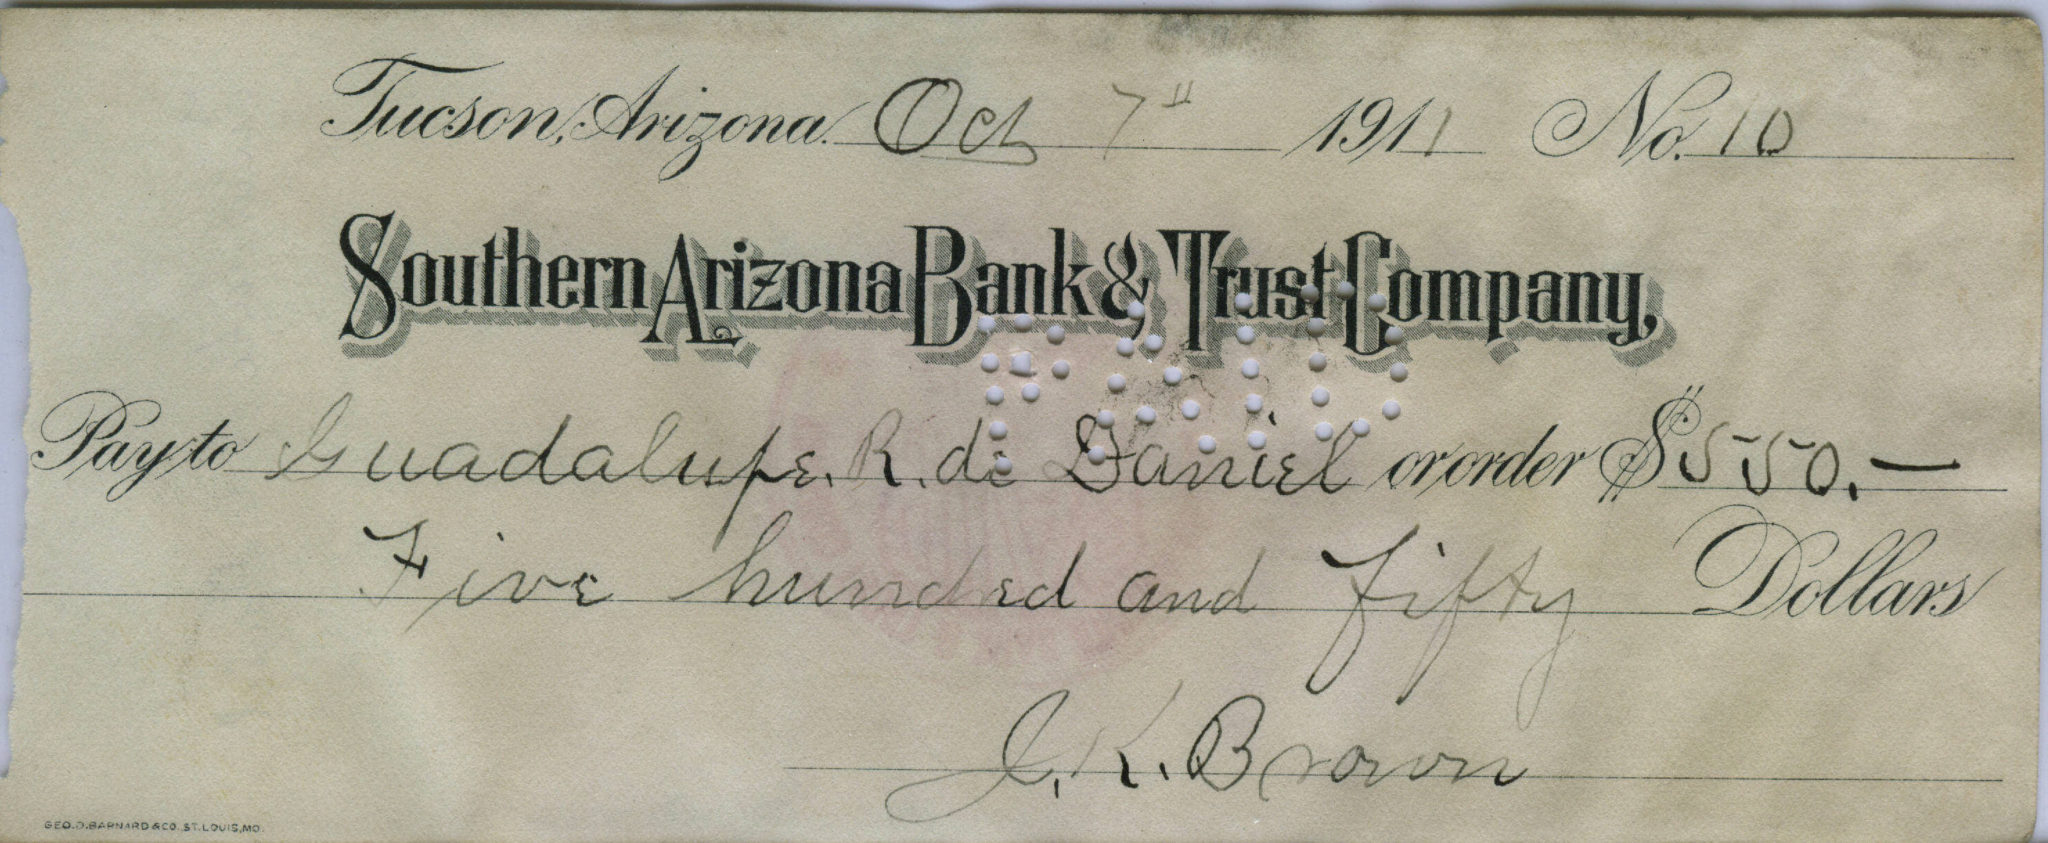 Tucson, Arizona. Oct 7" 1911 No. 10
Southern Arizona Bank & Trust Company,
PAID
Pay to Guadalupe. R. de Daniel or order $550.—
Five hundred and fifty Dollars
J. K. Brown
GEO. D. BARNARD & CO. ST. LOUIS, MO.